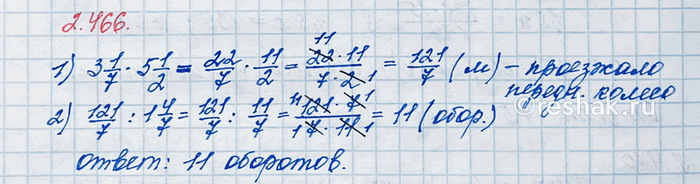 2.466.
1) 3 1/7 · 5 1/2 = 22/7 · 11/2 = 22 · 11 / 7 · 2 = 121/7 (м) – проезжало передн. колесо
11
1
2) 121/7 : 1 4/7 = 121/7 : 11/7 = 121 · 7 / 7 · 11 = 11 (обор.)
11 1
1 1
ответ: 11 оборотов.
reshak.ru